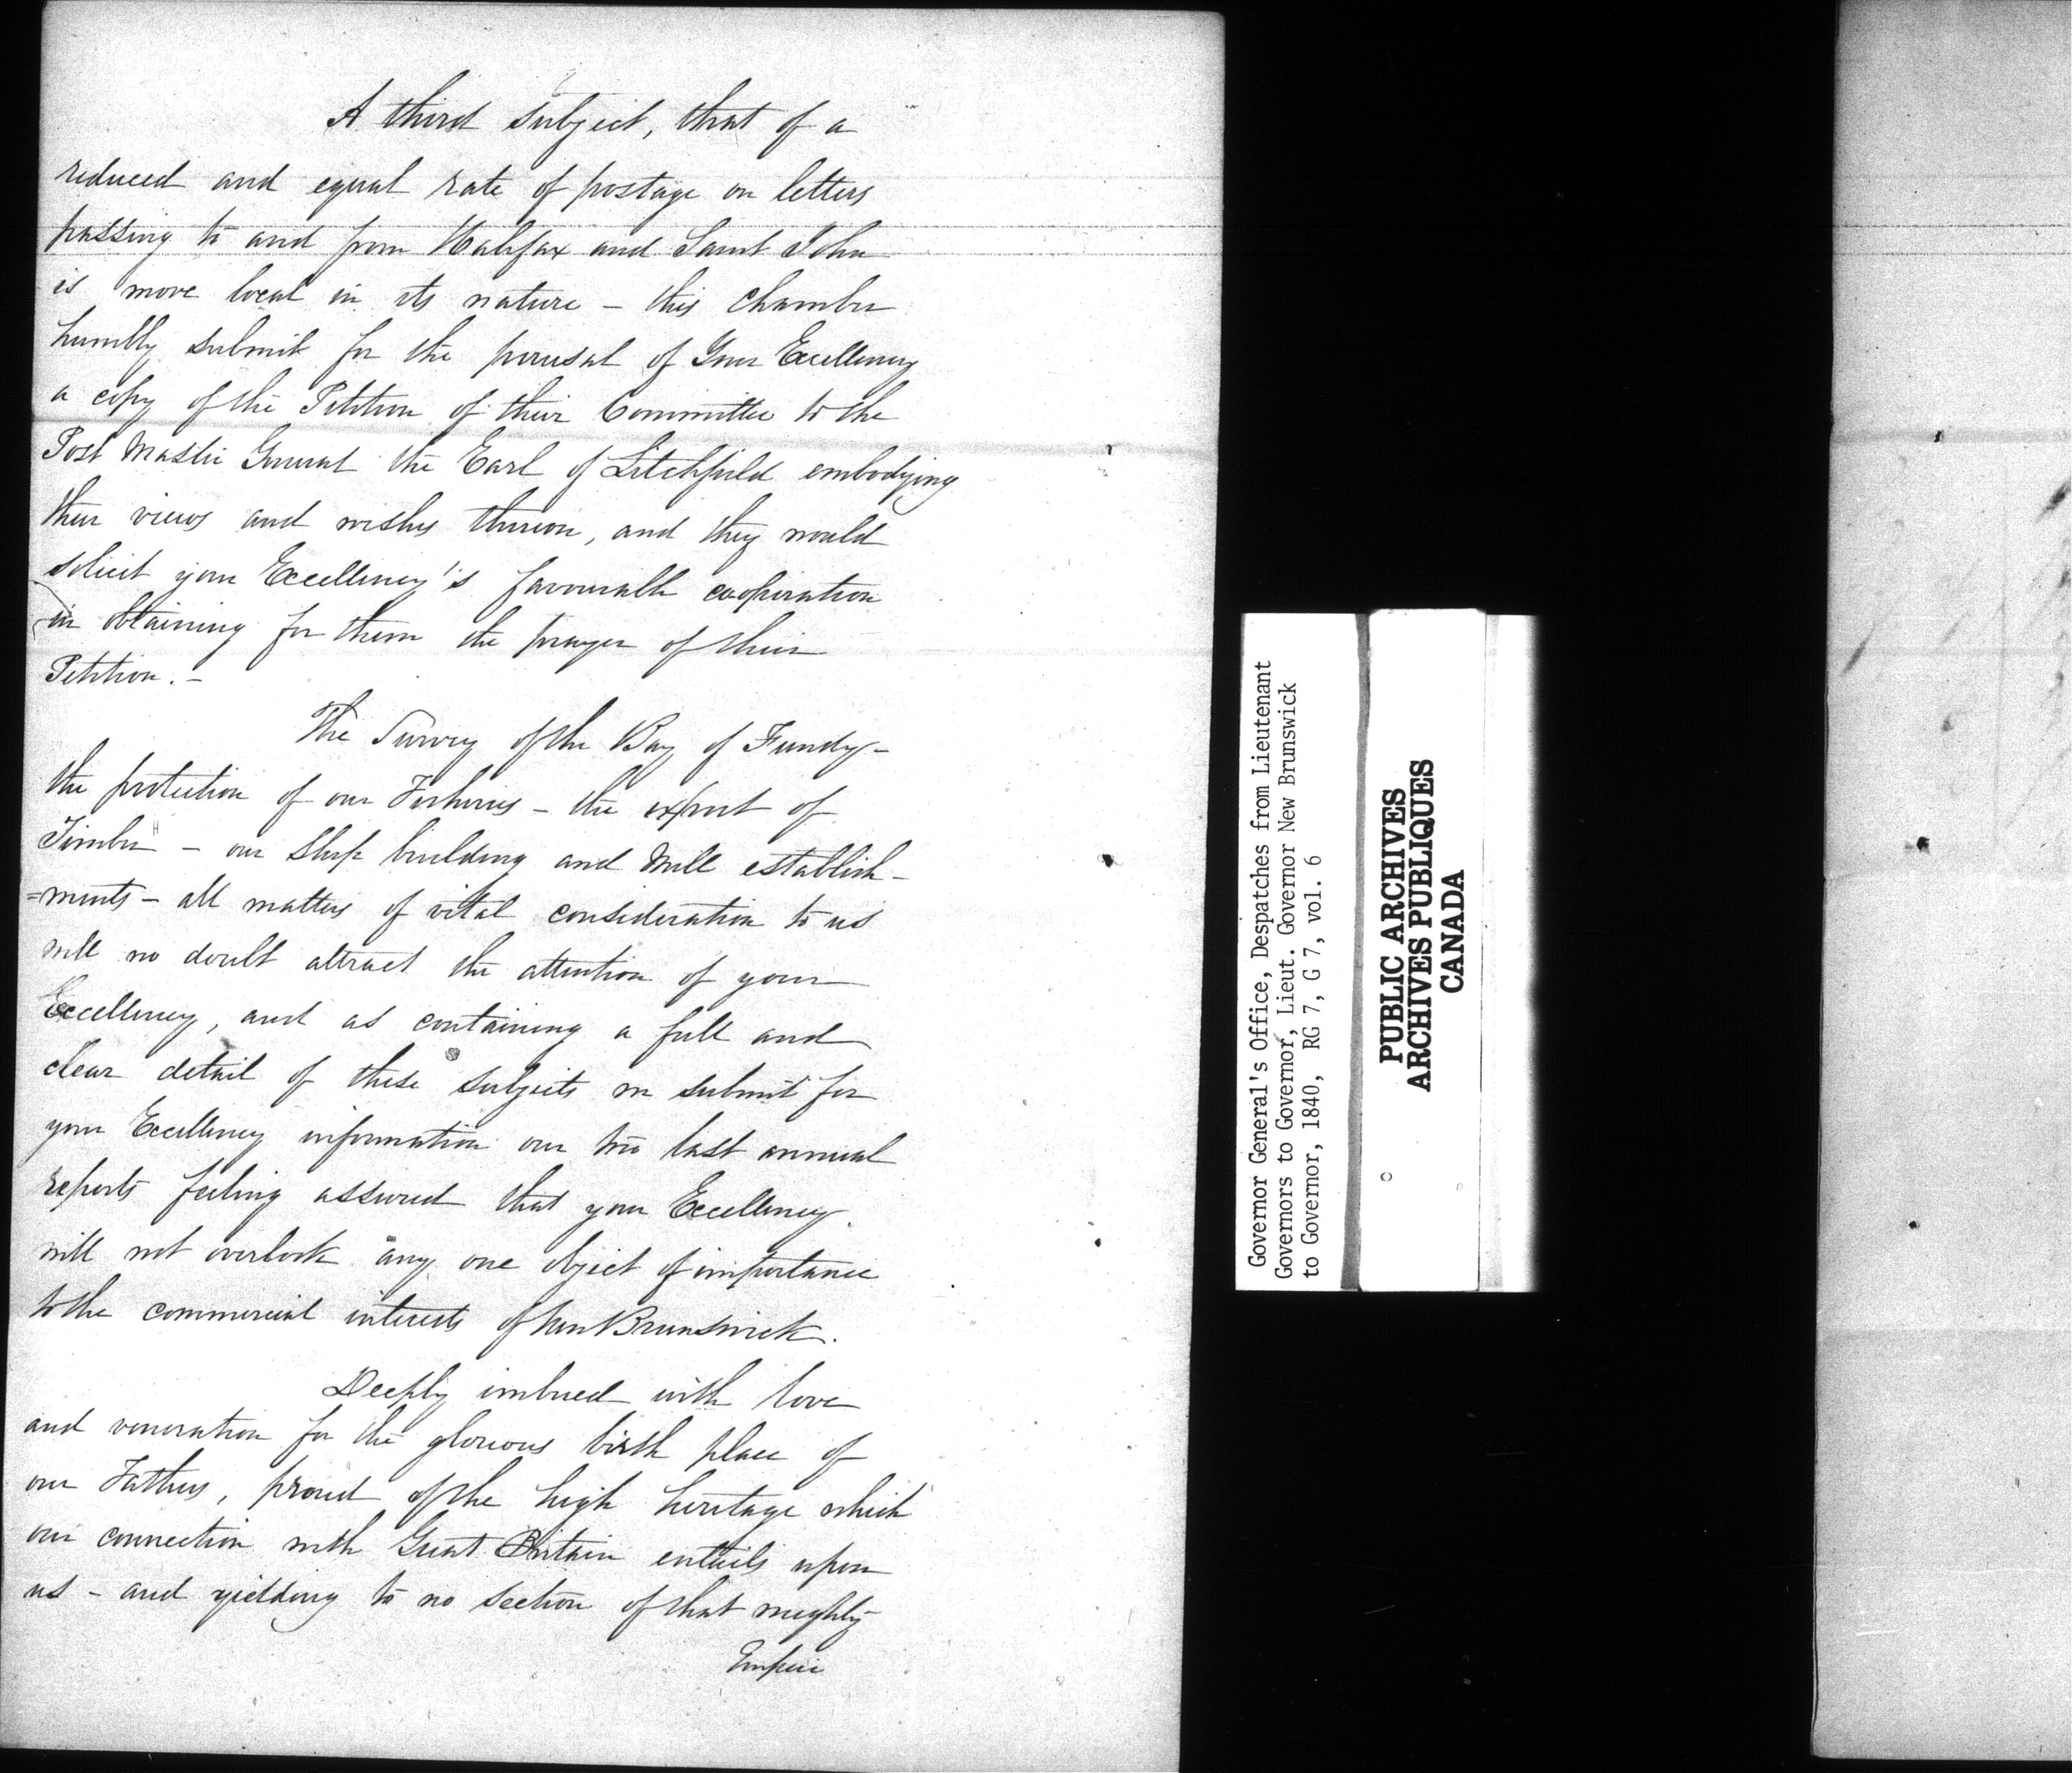 A third subject, that of a
reduced and equal rate of postage on letters
passing to and from Halifax and Saint John
is more local in its nature – this Chamber
humbly submit for the perusal of Your Excellency
a copy of the Petition of their Committee to the
Post Master General the Earl of Litchfield embodying
their views and wishes thereon, and they would
solicit your Excellency's favourable cooperation
in obtaining for them the prayer of their
Petition. –
The Survey of the Bay of Fundy –
the protection of our Fisheries – the export of
Timber – our Ship building and Mill establish-
=ments – all matters of vital consideration to us
will no doubt attract the attention of your
Excellency, and as containing a full and
clear detail of these subjects we submit for
your Excellency information our two last annual
reports feeling assured that your Excellency
will not overlook any one object of importance
to the commercial interests of New Brunswick.
Deeply imbued with love
and veneration for the glorious birth place of
our Fathers, proud of the high heritage which
our connection with Great Britain entails upon
us – and yielding to no section of that mighty
Empire
Governor General's Office, Despatches from Lieutenant
Governors to Governor, Lieut. Governor New Brunswick
to Governor, 1840, RG 7, G 7, vol. 6
PUBLIC ARCHIVES
ARCHIVES PUBLIQUES
CANADA